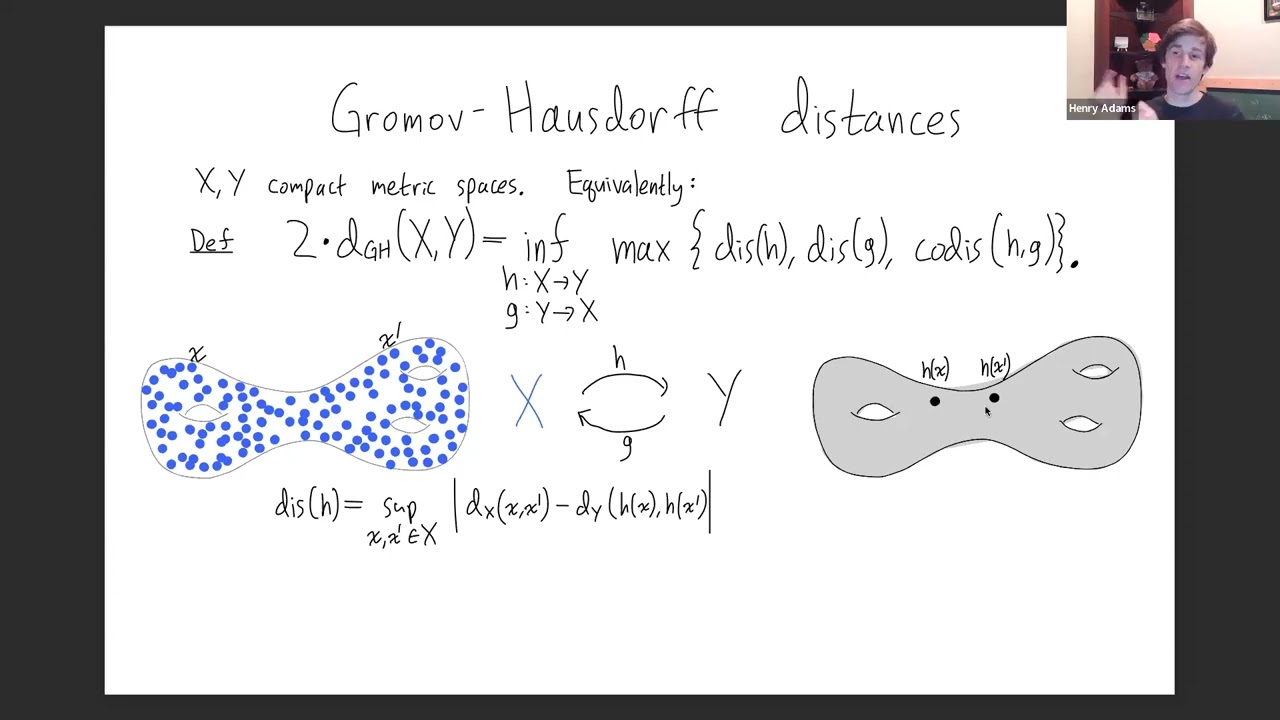 Henry Adams
Gromov-Hausdorff distances
X, Y compact metric spaces. Equivalently:
Def 2·dGH(X,Y) = inf max {dis(h), dis(g), codis(h,g)}.
h: X→Y
g: Y→X
x x' h h(x) h(x')
X Y
g
dis(h) = sup |dX(x,x') - dY(h(x), h(x'))|
x,x'∈X